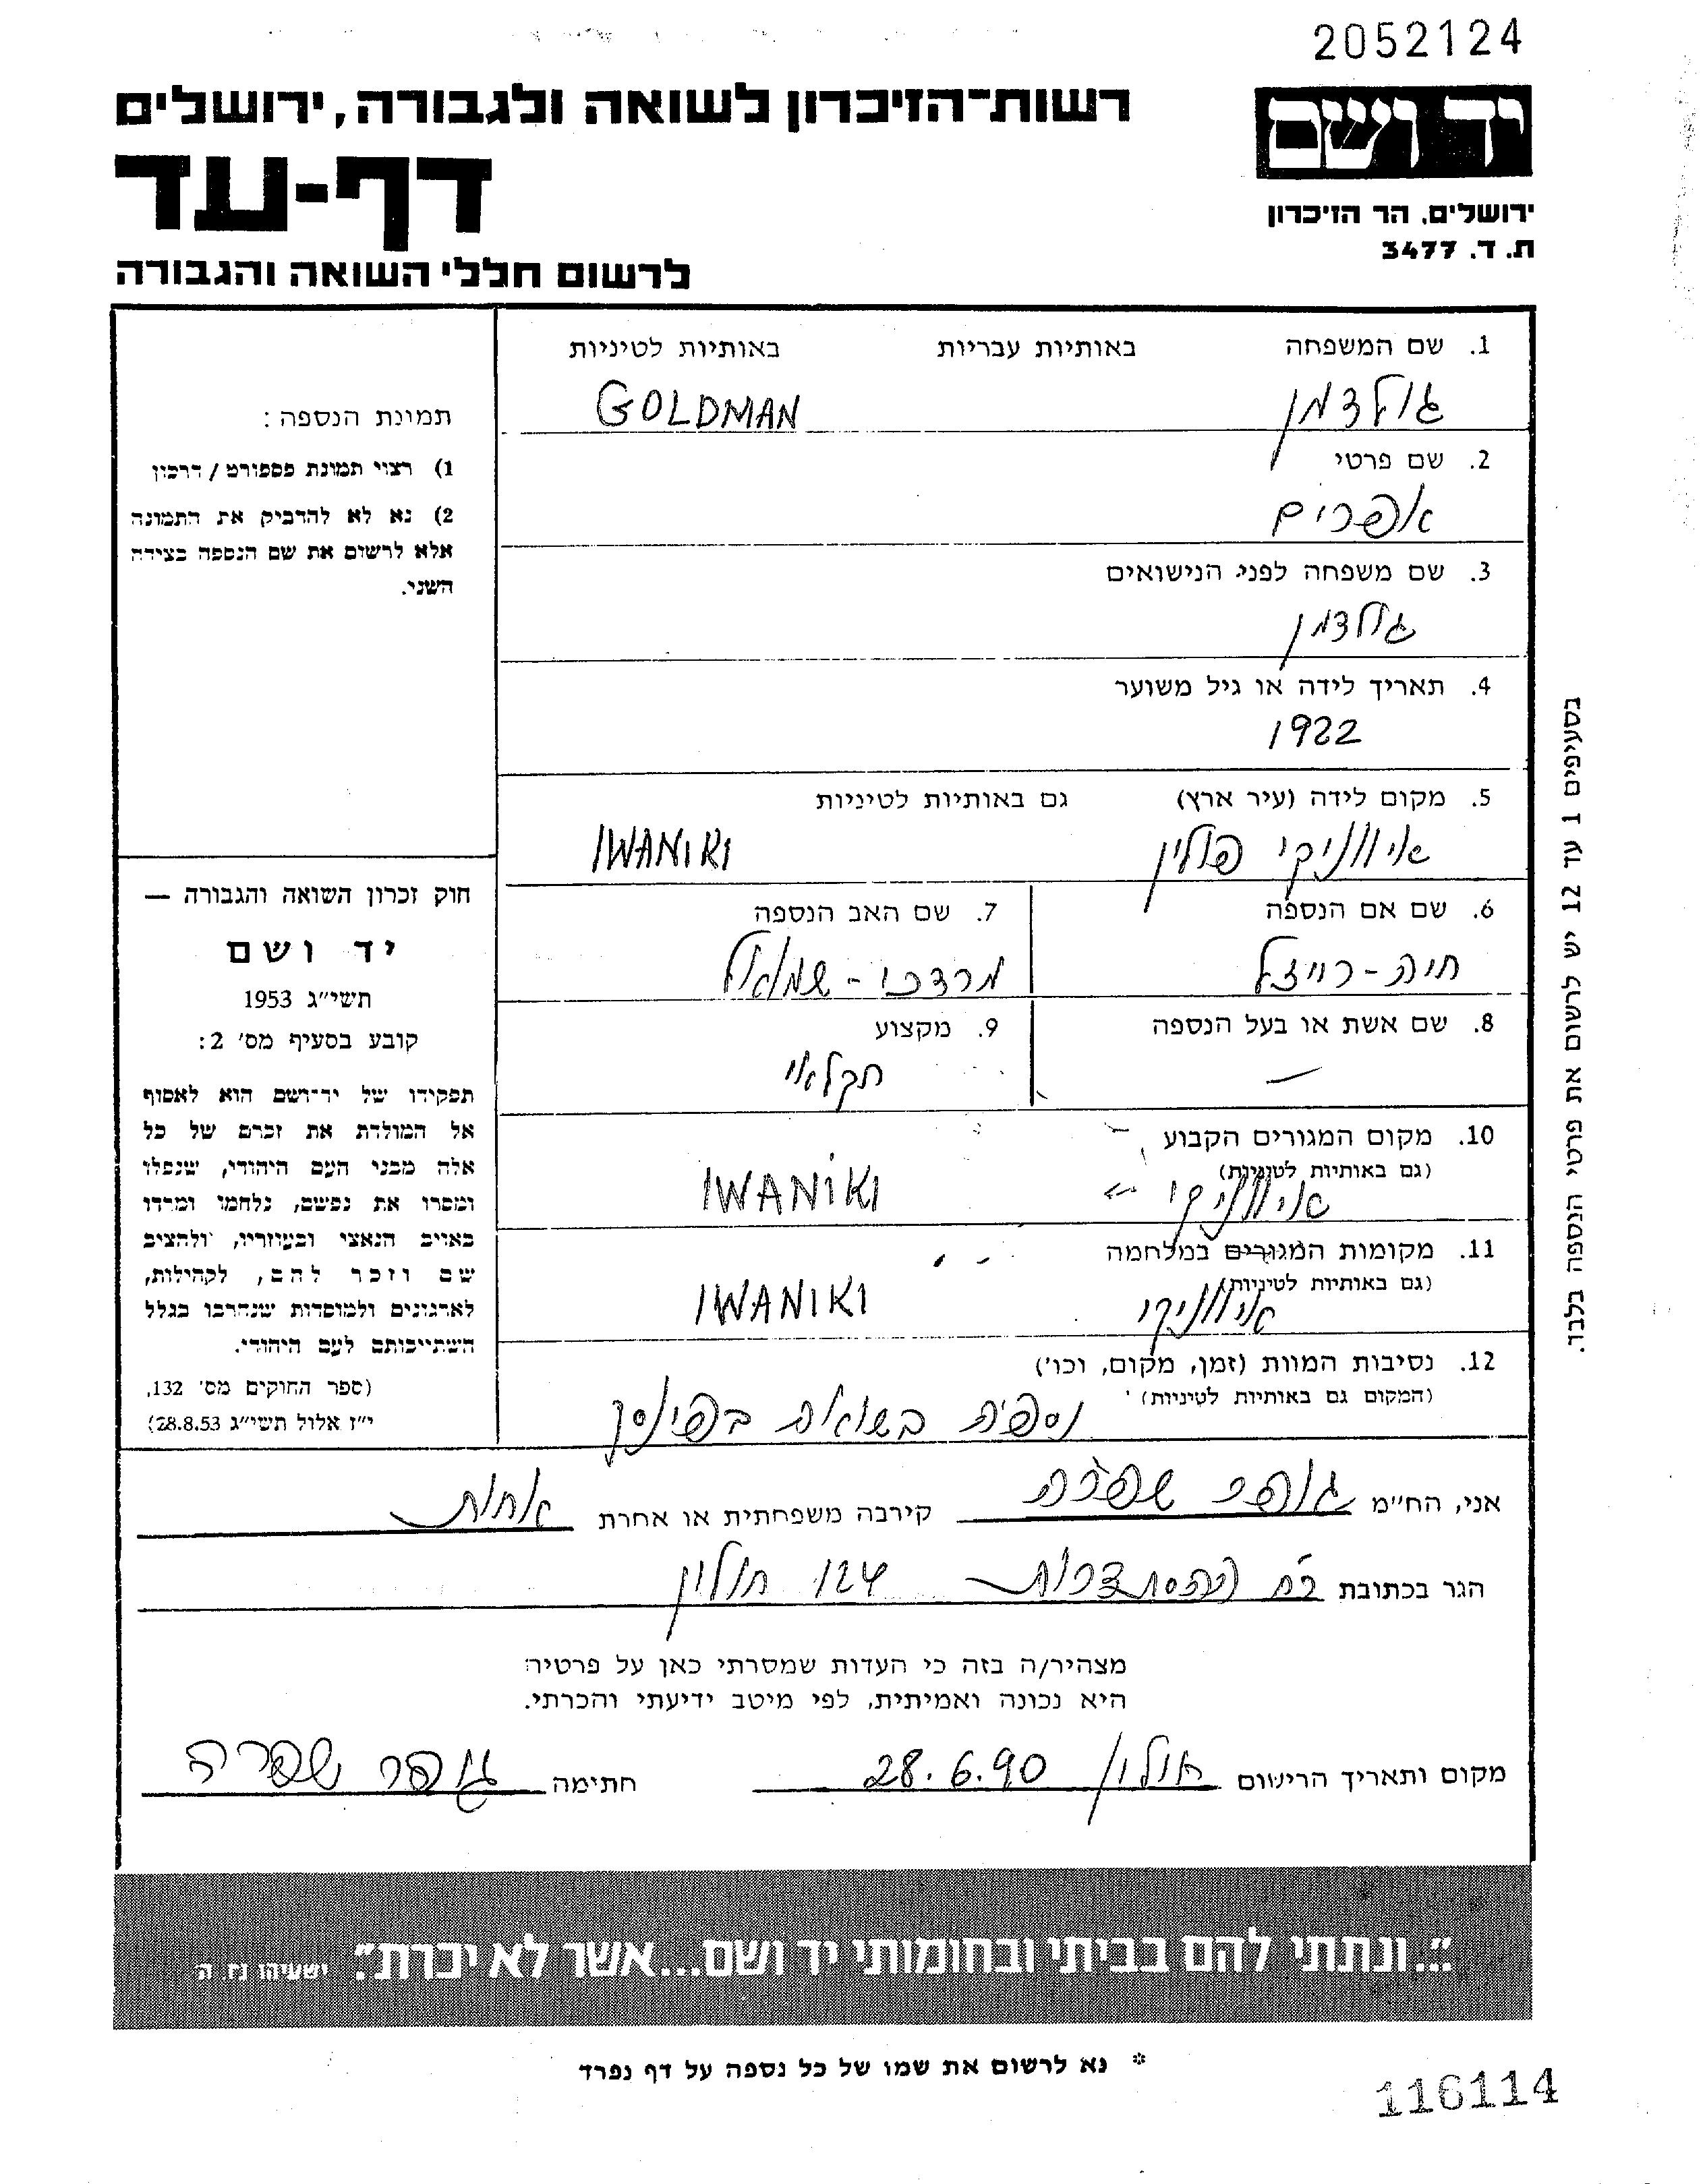 2052124
יד ושם
רשות־הזיכרון לשואה ולגבורה, ירושלים
דף-עד
ירושלים. הר הזיכרון
ת. ד. 3477
לרשום חללי השואה והגבורה
1. שם המשפחה באותיות עבריות באותיות לטיניות
גולדמן GOLDMAN
2. שם פרטי
אפרים
3. שם משפחה לפני הנישואים
גולדמן
4. תאריך לידה או גיל משוער
1922
5. מקום לידה (עיר ארץ) גם באותיות לטיניות
איווניקי פולין IWANIKI
6. שם אם הנספה 7. שם האב הנספה
חיה-רייזל מרדכי-שמואל
8. שם אשת או בעל הנספה 9. מקצוע
— חקלאי
10. מקום המגורים הקבוע
(גם באותיות לטיניות)
איווניקי IWANIKI
11. מקומות המגורים במלחמה
(גם באותיות לטיניות)
איווניקי IWANIKI
12. נסיבות המוות (זמן, מקום, וכו')
(המקום גם באותיות לטיניות)
נספה בשואה בפינסק
תמונת הנספה:
1) רצוי תמונת פספורט / דרכון
2) נא לא להדביק את התמונה
אלא לרשום את שם הנספה בצידה
השני.
חוק זכרון השואה והגבורה —
יד ושם
תשי"ג 1953
קובע בסעיף מס' 2:
תפקידו של יד־ושם הוא לאסוף
אל המולדת את זכרם של כל
אלה מבני העם היהודי, שנפלו
ומסרו את נפשם, נלחמו ומרדו
באויב הנאצי ובעוזריו, ולהציב
שם וזכר להם, לקהילות,
לארגונים ולמוסדות שנהרבו בגלל
השתייכותם לעם היהודי.
(ספר החוקים מס' 132,
י"ז אלול תשי"ג 28.8.53)
בסעיפים 1 עד 12 יש לרשום את פרטי הנספה בלבד.
אני, הח"מ שפרה קירבה משפחתית או אחרת אחות
הגר בכתובת רח ההסתדרות 124 חולון
מצהיר/ה בזה כי העדות שמסרתי כאן על פרטיה
היא נכונה ואמיתית, לפי מיטב ידיעתי והכרתי.
מקום ותאריך הרישום חולון 28.6.90 חתימה שפרה
"...ונתתי להם בביתי ובחומותי יד ושם...אשר לא יכרת". ישעיהו נו. ה
* נא לרשום את שמו של כל נספה על דף נפרד
116114